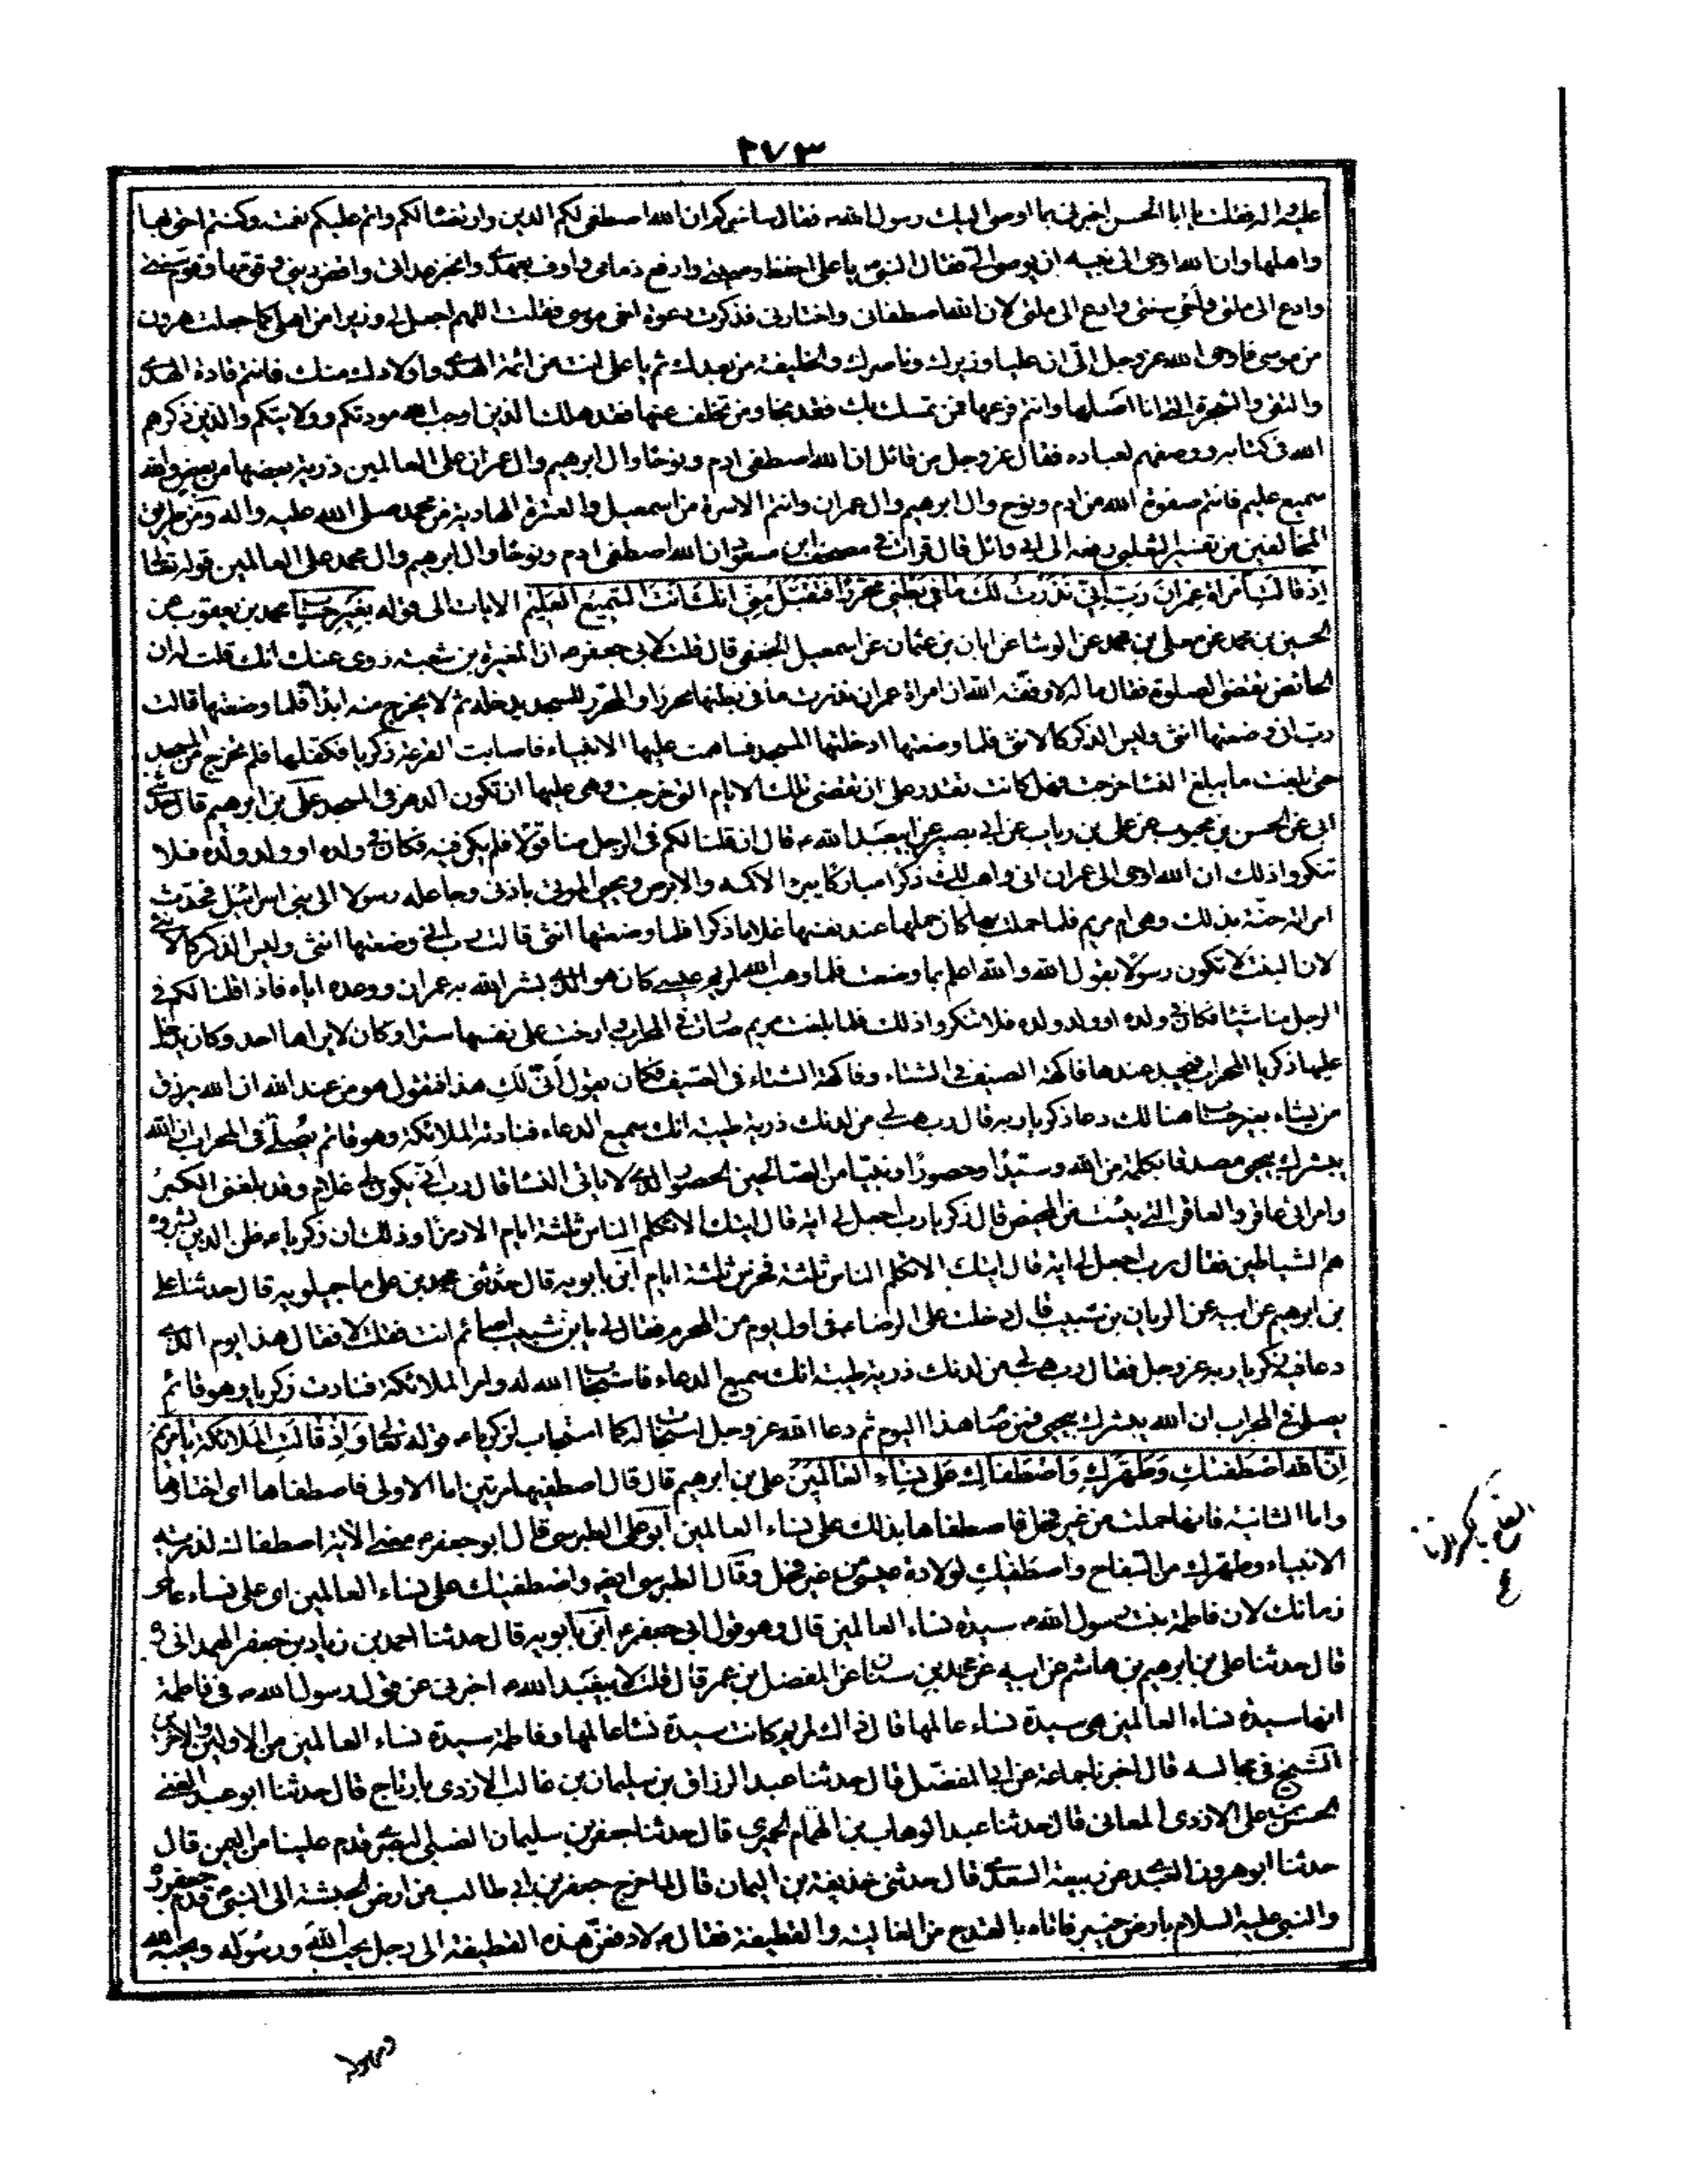 ٢٧٣
عليه واله فقلت يا ابا الحسن اخبرني بما اوصى اليك رسول الله ص فقال سانبئكم ان الله اصطفى لكم الدين وارتضاه لكم واتم عليكم نعمته وكنتم احق بها
واهلها وان الله اوحى الى نبيه ان يوصى الى فقال النبي ص يا على احفظ وصيتي وارفع ذمامي واوف بعهدي وانجز عداتي واقض ديني وقومها وقوم سنتي
وادع الى ملتي واحي سنتي وادع الى ملتي لان الله اصطفاني واختارني فذكرت دعوة اخي موسى فقلت اللهم اجعل لي وزيرا من اهلي كما جعلت هرون
من موسى فاوحى الله عز وجل الى ان عليا وزيرك وناصرك والخليفة من بعدك ثم يا على انت من ائمة الهدى واولادك منك فانتم قادة الهدى
والتقى والشجرة التي انا اصلها وانتم فرعها فمن تمسك بها فقد نجا ومن تخلف عنها فقد هلك الذين اوجب الله مودتكم وولايتكم والذين ذكرهم
الله في كتابه ووصفهم لعباده فقال عز وجل من قائل ان الله اصطفى ادم ونوحا وال ابرهيم وال عمران على العالمين ذرية بعضها من بعض والله
سميع عليم فانتم صفوة الله من ادم ونوح وال ابرهيم وال عمران وانتم الاسرة من اسمعيل والعترة الهادية من محمد صلى الله عليه واله ومن طريق
المخالفين من تفسير الثعلبي رفعه الى ابي وائل قال قرات في مصحف ابن مسعود ان الله اصطفى ادم ونوحا وال ابرهيم وال محمد على العالمين قوله تعالى
اِذْ قالَتِ امْرَاَةُ عِمْرانَ رَبِّ اِنّي نَذَرْتُ لَكَ ما في بَطْني مُحَرَّرًا فَتَقَبَّلْ مِنّي اِنَّكَ اَنْتَ السَّميعُ الْعَليمُ الايات الى قوله بِغَيْرِ حِسابٍ محمد بن يعقوب عن
الحسين بن محمد عن معلى بن محمد عن الوشا عن ابان بن عثمان عن اسمعيل الجعفي قال قلت لابي جعفر ع ان المغيرة بن شعبة روى عنك انك قلت له ان
الحائض تقضى الصلوة فقال ما له لا وفقه الله ان امراة عمران نذرت ما في بطنها محررا والمحرر للمسجد يدخله ثم لا يخرج منه ابدا فلما وضعتها قالت
رب اني وضعتها انثى وليس الذكر كالانثى فلما وضعتها ادخلتها المسجد فساهمت عليها الانبياء فاصابت القرعة زكريا فكفلها فلم تخرج من المسجد
حتى بلغت ما يبلغ النسا خرجت فهل كانت تقدر على ان تقضى تلك الايام التي خرجت وهي عليها ان تكون الدهر في المسجد على بن ابرهيم قال حدثني
ابي عن الحسن بن محبوب عن على بن رياب عن ابي بصير عن ابيعبد الله ع قال ان قلنا لكم في الرجل منا قولا فلم يكن فيه فكان في ولده او ولد ولده فلا
تنكروا ذلك ان الله اوحى الى عمران اني واهب لك ذكرا مباركا يبرا الاكمه والابرص ويحيى الموتى باذني وجاعله رسولا الى بني اسرائيل فحدث
امراته حنة بذلك وهي ام مريم فلما حملت بها كان حملها عند نفسها غلاما ذكرا فلما وضعتها انثى قالت رب اني وضعتها انثى وليس الذكر كالانثى
لان البنت لا تكون رسولا يقول الله والله اعلم بما وضعت فلما وهب الله لمريم عيسى كان هو الذي بشر الله به عمران ووعده اياه فاذا قلنا لكم في
الرجل منا شيئا فكان في ولده او ولد ولده فلا تنكروا ذلك فلما بلغت مريم صارت في المحراب وارخت على نفسها سترا وكان لا يراها احد وكان يدخل
عليها زكريا المحراب فيجد عندها فاكهة الصيف في الشتاء وفاكهة الشتاء في الصيف فكان يقول اَنّى لَكِ هذا فتقول هو من عند الله ان الله يرزق
من يشاء بغير حساب هنالك دعا زكريا ربه قال رب هب لي من لدنك ذرية طيبة انك سميع الدعاء فنادته الملائكة وهو قائم يصلي في المحراب ان الله
يبشرك بيحيى مصدقا بكلمة من الله وسيدا وحصورا ونبيا من الصالحين الحصور الذي لا ياتي النسا قال رب اَنّى يكون لي غلام وقد بلغني الكبر
وامراتي عاقر والعاقر التي يئست من المحيض قال زكريا رب اجعل لي اية قال ايتك الا تكلم الناس ثلثة ايام الا رمزا وذلك ان زكريا ع ظن الذين بشروه
هم الشياطين فقال رب اجعل لي اية قال ايتك الا تكلم الناس ثلثة فخرس ثلثة ايام ابن بابويه قال حدثني محمد بن على ماجيلويه قال حدثنا على
بن ابرهيم عن ابيه عن الريان بن شبيب قال دخلت على الرضا ع في اول يوم من المحرم فقال لي يا بن شبيب اصائم انت فقلت لا فقال هذا يوم الذي
دعا فيه زكريا ربه عز وجل فقال رب هب لي من لدنك ذرية طيبة انك سميع الدعاء فاستجاب الله له وامر الملائكة فنادت زكريا وهو قائم
يصلي في المحراب ان الله يبشرك بيحيى فمن صام هذا اليوم ثم دعا الله عز وجل استجاب له كما استجاب لزكريا ع قوله تعالى وَاِذْ قالَتِ الْمَلائِكَةُ يا مَرْيَمُ
اِنَّ اللهَ اصْطَفيكِ وَطَهَّرَكِ وَاصْطَفاكِ عَلى نِساءِ الْعالَمينَ على بن ابرهيم قال قال اصطفيها مرتين اما الاولى فاصطفاها اى اختارها
واما الثانية فانها حملت من غير فحل فاصطفاها بذلك على نساء العالمين ابو على الطبرسى قال ابو جعفر ع معنى الاية اصطفاك لذرية
الانبياء وطهرك من السفاح واصطفيك لولادة عيسى من غير فحل وقال الطبرسى ايضا واصطفيك على نساء العالمين اى على نساء عالمي
زمانك لان فاطمة بنت رسول الله ص سيدة نساء العالمين قال وهو قول ابي جعفر ع ابن بابويه قال حدثنا احمد بن زياد بن جعفر الهمداني
قال حدثنا على بن ابرهيم بن هاشم عن ابيه عن محمد بن سنان عن المفضل بن عمر قال قلت لابيعبد الله ع اخبرني عن قول رسول الله ص في فاطمة
انها سيدة نساء العالمين هي سيدة نساء عالمها قال ذاك لمريم كانت سيدة نسا عالمها وفاطمة سيدة نساء العالمين من الاولين والاخرين
الشيخ في مجالسه قال اخبرنا جماعة عن ابي المفضل قال حدثنا عبد الرزاق بن سليمان بن غالب الازدى بارتاج قال حدثنا ابو عبد الغني
الحسن بن على الازدى المعاني قال حدثنا عبد الوهاب بن الهمام الحميرى قال حدثنا جعفر بن سليمان الضبلي البصرى قدم علينا من اليمن قال
حدثنا ابو هرون العبدي عن ربيعة السعدى قال حدثني حذيفة بن اليمان قال لما خرج جعفر بن ابي طالب من ارض الحبشة الى النبي ص قدم جعفر
والنبي عليه السلام بارض خيبر فاتاه بالقدح من الغالية والقطيفة فقال ص لادفعن هذه القطيفة الى رجل يحب الله ورسوله ويحبه الله